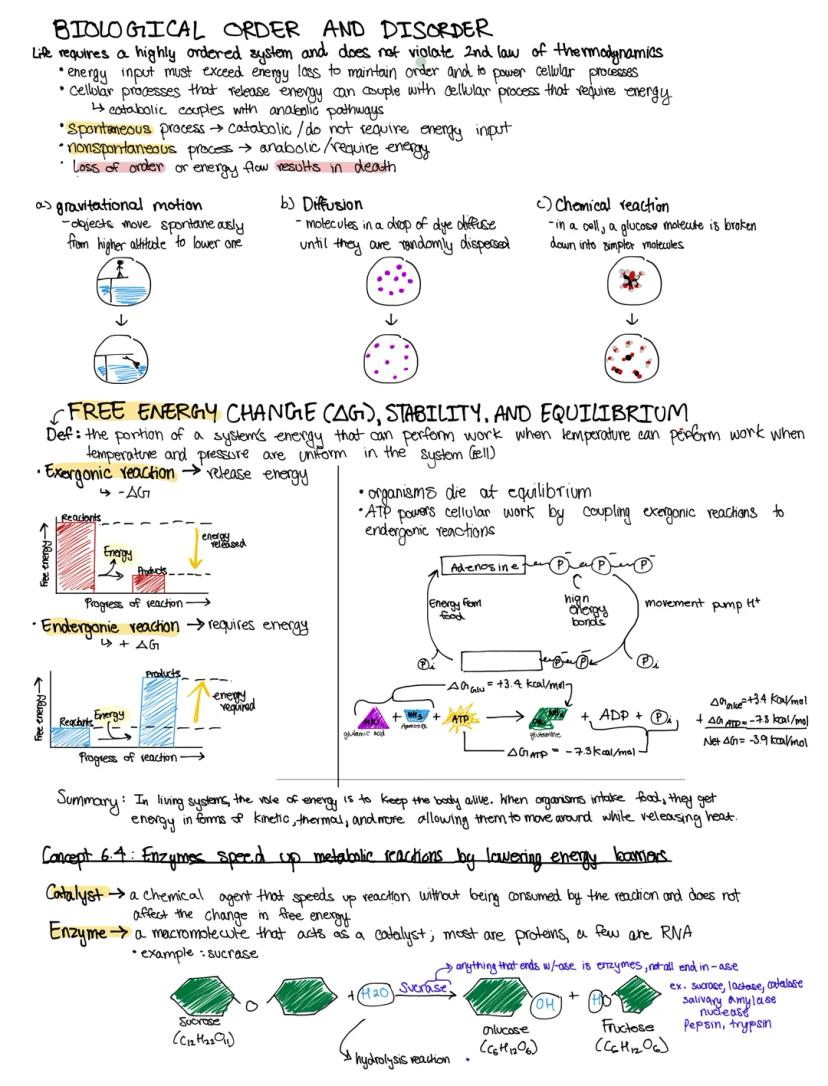 BIOLOGICAL ORDER AND DISORDER
Life requires a highly ordered system and does not violate 2nd law of thermodynamics
• energy input must exceed energy loss to maintain order and to power cellular processes
• cellular processes that release energy can couple with cellular process that require energy
↳ catabolic couples with anabolic pathways
• spontaneous process → catabolic / do not require energy input
• nonspontaneous process → anabolic / require energy
• Loss of order or energy flow results in death
a) gravitational motion
- objects move spontaneously
from higher altitude to lower one
b) Diffusion
- molecules in a drop of dye diffuse
until they are randomly dispersed
c) Chemical reaction
- in a cell, a glucose molecule is broken
down into simpler molecules
FREE ENERGY CHANGE (ΔG), STABILITY, AND EQUILIBRIUM
Def: the portion of a system's energy that can perform work when temperature can perform work when
temperature and pressure are uniform in the system (cell)
• Exergonic reaction → release energy
↳ -ΔG
Reactants
Free energy →
Energy
Products
energy
released
Progress of reaction →
• Endergonic reaction → requires energy
↳ + ΔG
Products
Free energy →
Reactants
Energy
energy
required
Progress of reaction →
• organisms die at equilibrium
• ATP powers cellular work by coupling exergonic reactions to
endergonic reactions
Adenosine P P P
Energy from
food
high
energy
bonds
movement pump H+
Pi P P Pi
ΔG Glu = +3.4 kcal/mol
NH3 + ATP → + ADP + Pi
glutamic acid
Ammonia
glutamine
ΔG ATP = -7.3 kcal/mol
ΔG Glu = +3.4 kcal/mol
+ ΔG ATP = -7.3 kcal/mol
Net ΔG = -3.9 kcal/mol
Summary: In living systems, the role of energy is to keep the body alive. When organisms intake food, they get
energy in forms of kinetic, thermal, and more allowing them to move around while releasing heat.
Concept 6.4: Enzymes speed up metabolic reactions by lowering energy barriers
Catalyst → a chemical agent that speeds up reaction without being consumed by the reaction and does not
affect the change in free energy
Enzyme → a macromolecule that acts as a catalyst; most are proteins, a few are RNA
• example: sucrase
→ anything that ends w/-ase is enzymes, not all end in -ase
ex. sucrase, lactase, catalase
salivary amylase
nuclease
Pepsin, trypsin
O + H2O Sucrase → OH + HO
Sucrose
(C12H22O11)
Glucose
(C6H12O6)
Fructose
(C6H12O6)
hydrolysis reaction •